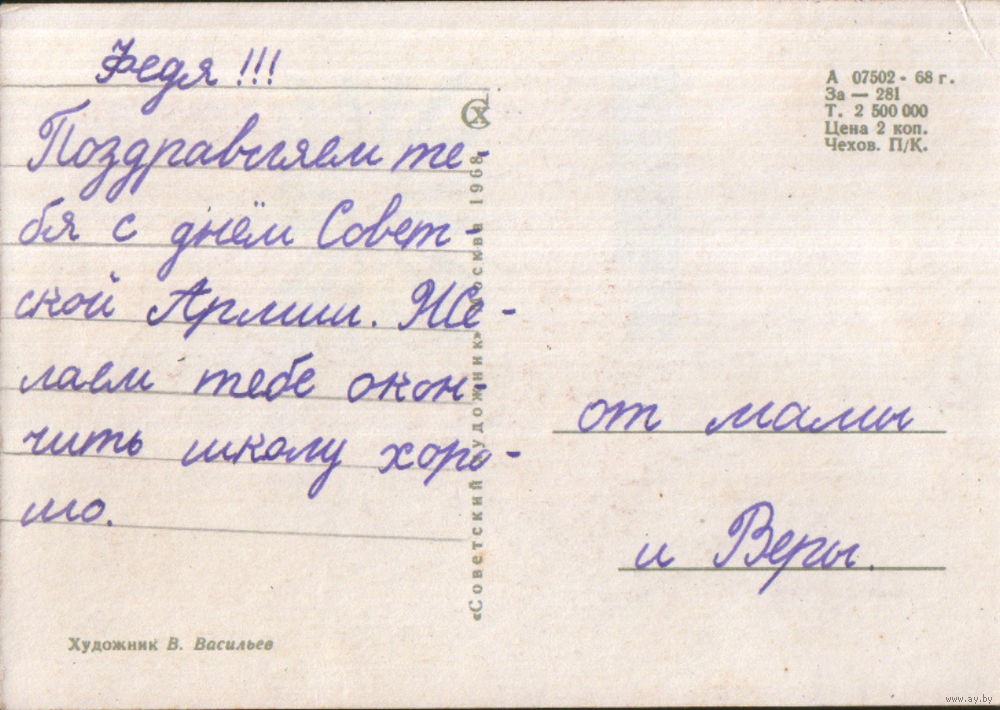 Федя !!!
Поздравляем те-
бя с днём Совет-
ской Армии. Же-
лаем тебе окон-
чить школу хоро-
шо.
Художник В. Васильев
«Советский художник» Москва 1968
СХ
А 07502 - 68 г.
За — 281
Т. 2 500 000
Цена 2 коп.
Чехов. П/К.
от мамы
и Веры.
www.ay.by